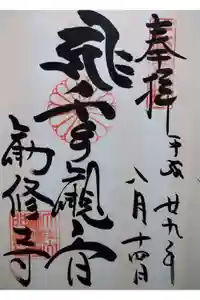 奉拝
平成廿九年
八月十四日
千手觀音
勧修寺